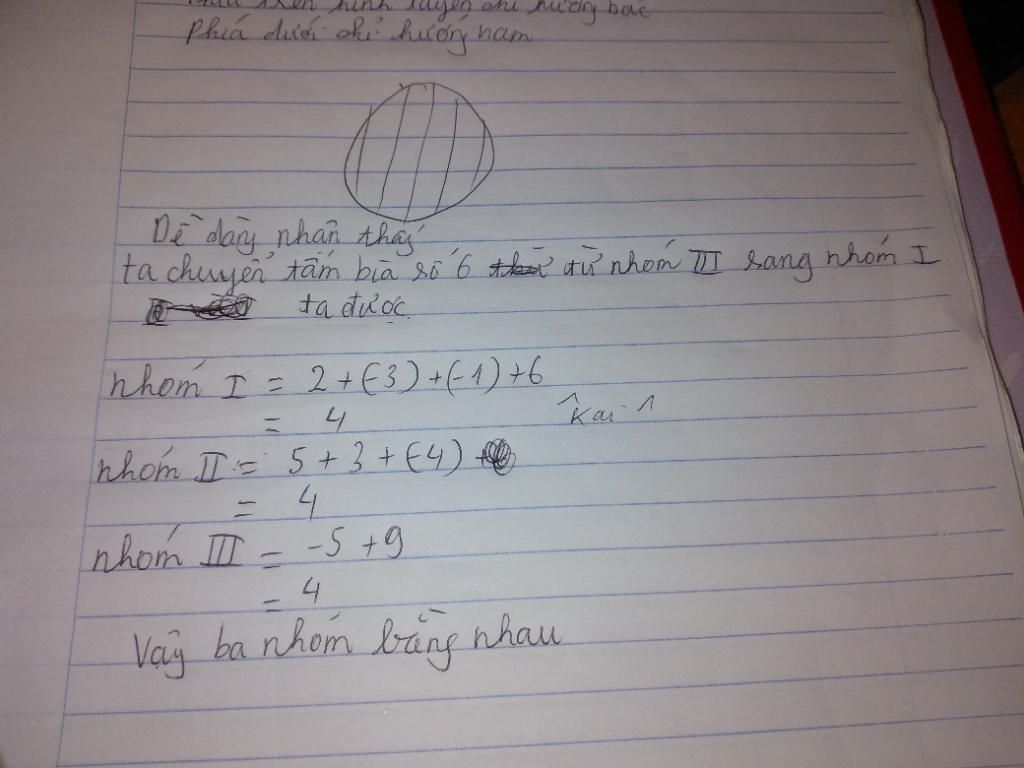 trên hình tuyến chỉ hướng bắc
Phía dưới chỉ hướng nam
Dề dàng nhận thấy
ta chuyển tấm bìa số 6 từ nhóm III sang nhóm I
ta được
nhóm I = 2 + (-3) + (-1) + 6
= 4
^ Kai ^
nhóm II = 5 + 3 + (-4)
= 4
nhóm III = -5 + 9
= 4
Vậy ba nhóm bằng nhau